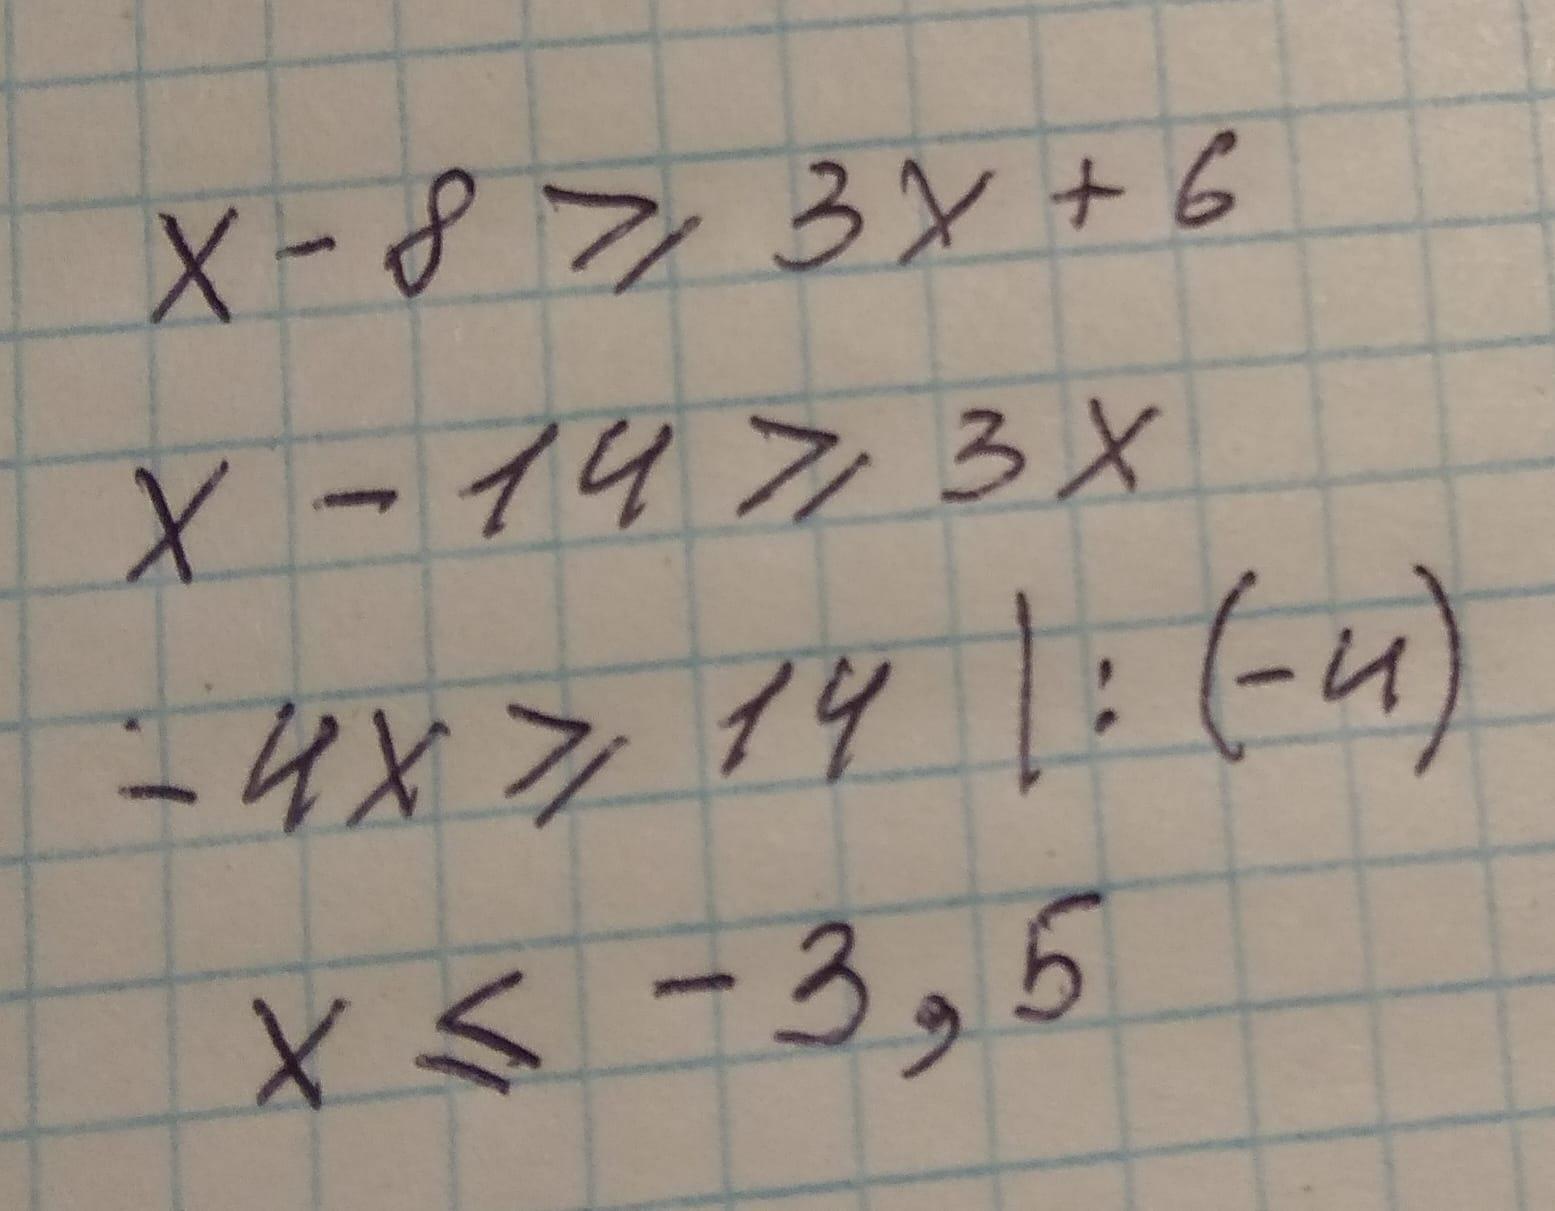 x - 8 ⩾ 3x + 6
x - 14 ⩾ 3x
- 4x ⩾ 14 | : (-4)
x ≤ -3,5